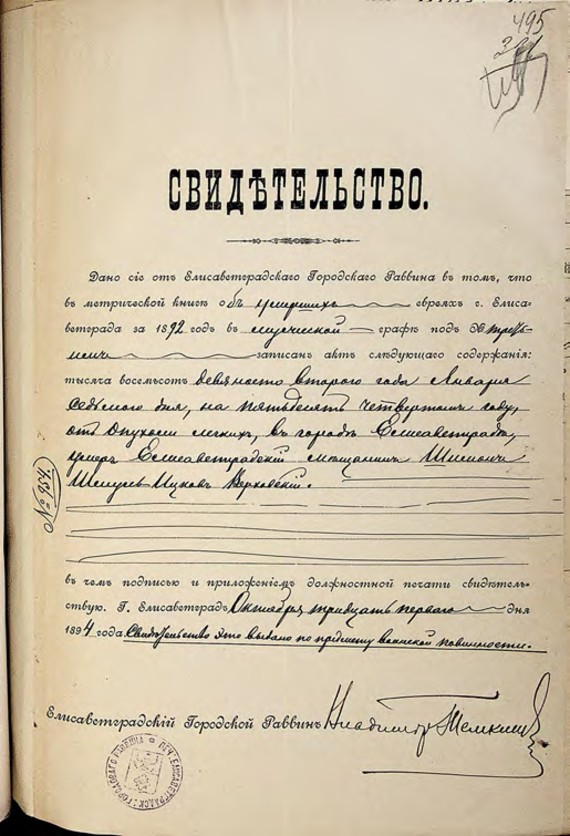 495
СВИДѢТЕЛЬСТВО.
Дано сіе отъ Елисаветградскаго Городскаго Раввина въ томъ, что
въ метрической книгѣ объ умершихъ евреяхъ г. Елиса-
ветграда за 1892 годъ въ мужеской графѣ подъ № треть-
имъ записанъ актъ слѣдующаго содержанія:
тысяча восемьсотъ девяносто втораго года Января
седьмого дня, на пятьдесятъ четвертомъ году,
отъ опухоли легкихъ, въ городѣ Елисаветградѣ,
умеръ Елисаветградскій мѣщанинъ Шимонъ
Шмуль Ицковъ Верховскій.
№ 954
въ чемъ подписью и приложеніемъ должностной печати свидѣтель-
ствую. Г. Елисаветградъ, Октября тридцать перваго дня
1894 года. Свидѣтельство это выдано по предмету воинской повинности.
Елисаветградскій Городской Раввинъ Владиміръ Темкинъ